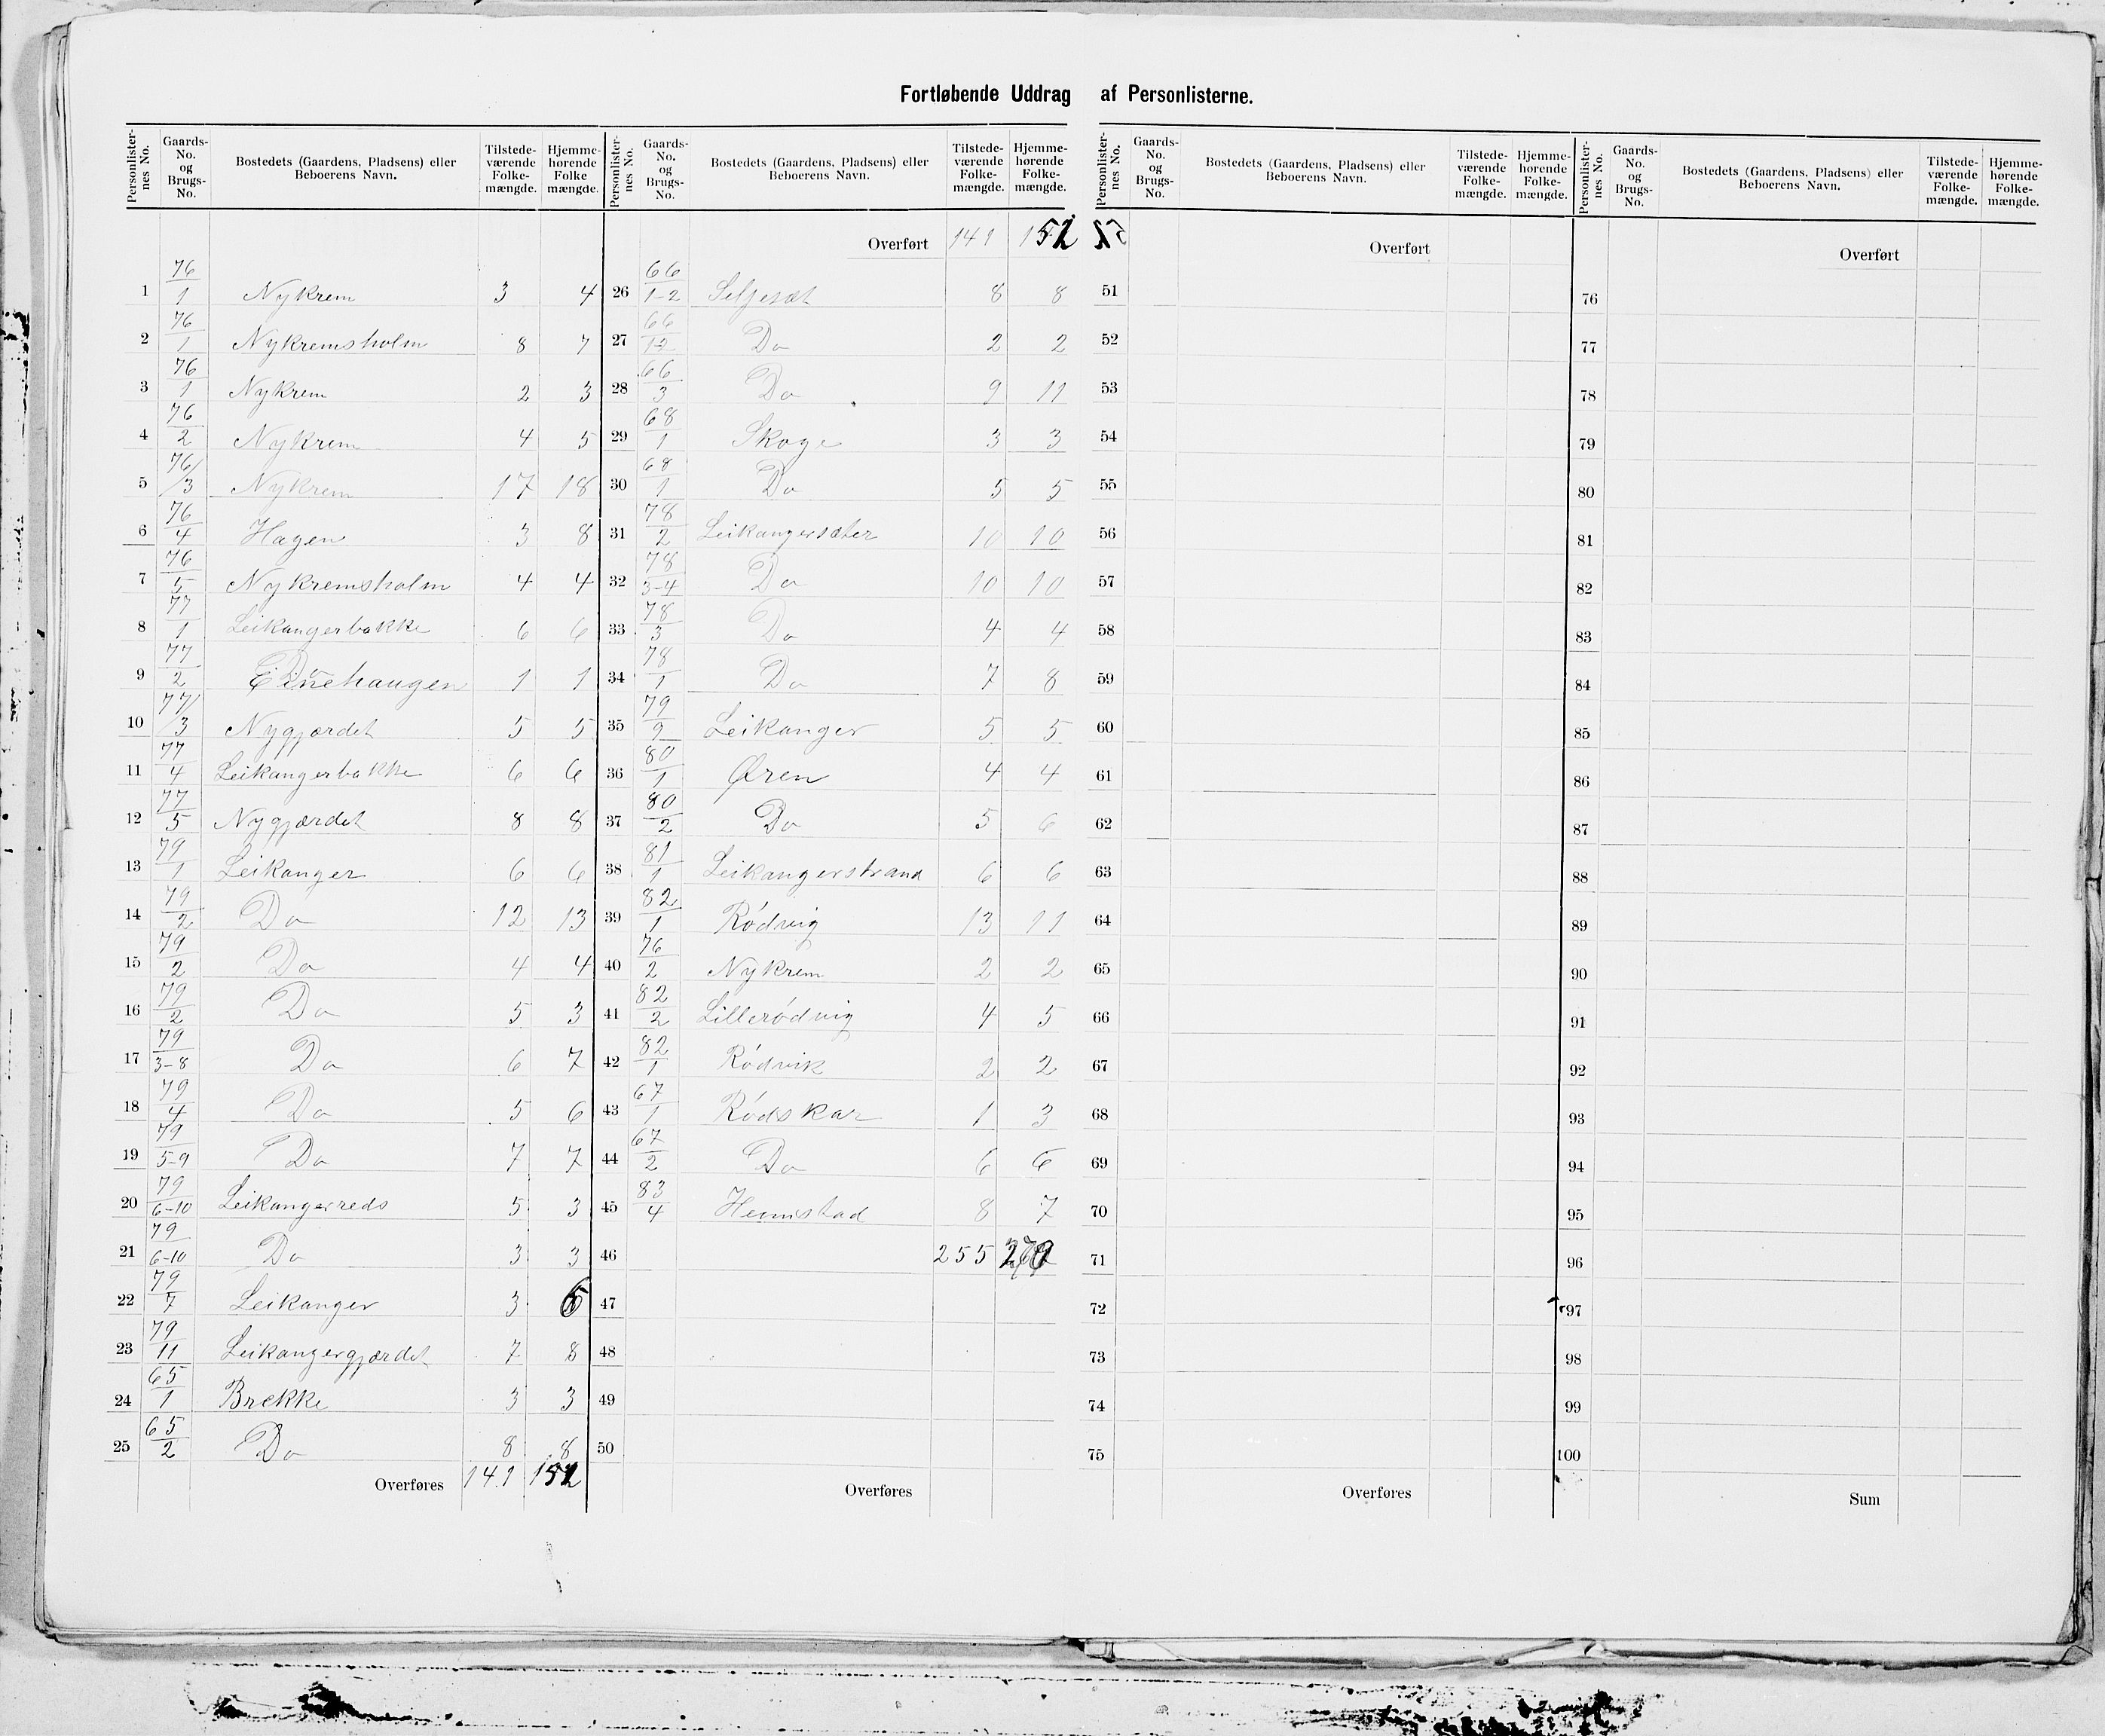 Fortløbende Uddrag af Personlisterne.
Personlisternes No. | Gaards-No. og Brugs-No. | Bostedets (Gaardens, Pladsens) eller Beboerens Navn. | Tilstedeværende Folkemængde. | Hjemmehorende Folke mængde.
1 76/1 Nykrem 3 4
2 76/1 Nykremsholm 8 7
3 76/1 Nykrem 2 3
4 76/2 Nykrem 4 5
5 76/3 Nykrem 17 18
6 76/4 Hagen 3 8
7 76/5 Nykremsholm 4 4
8 77/1 Leikangerbakke 6 6
9 77/2 1 1
10 77/3 Nygjærdet 5 5
11 77/4 Leikangerbakke 6 6
12 77/5 Nygjærdet 8 8
13 79/1 Leikanger 6 6
14 79/2 Do 12 13
15 79/2 Do 4 4
16 79/2 Do 5 3
17 79/3-8 Do 6 7
18 79/4 Do 5 6
19 79/5-9 Do 7 7
20 79/6-10 Leikangerreds 5 3
21 79/6-10 Do 3 3
22 79/7 Leikanger 3
23 79/11 Leikangergjærdet 7 8
24 65/1 Brekke 3 3
25 65/2 Do 8 8
Overføres 141 152
Personlisternes No. | Gaards-No. og Brugs-No. | Bostedets (Gaardens, Pladsens) eller Beboerens Navn. | Tilstedeværende Folkemængde. | Hjemmehorende Folkemængde.
Overført 141 152
26 66/1-2 Seljesæt 8 8
27 66/12 Do 2 2
28 66/3 Do 9 11
29 68/1 Skoge 3 3
30 68/1 Do 5 5
31 78/2 Leikangersæter 10 10
32 78/3-4 Do 10 10
33 78/3 Do 4 4
34 78/1 Do 7 8
35 79/9 Leikanger 5 5
36 80/1 Øren 4 4
37 80/2 Do 5 6
38 81/1 Leikangerstrand 6 6
39 82/1 Rødvig 13 11
40 76/2 Nykrem 2 2
41 82/2 Lillerødvig 4 5
42 82/1 Rødvik 2 2
43 67/1 Rødskar 1 3
44 67/2 Do 6 6
45 83/4 Hennstad 8 7
46 255
47
48
49
50
Overføres
Personlisternes No. | Gaards-No. og Brugs-No. | Bostedets (Gaardens, Pladsens) eller Beboerens Navn. | Tilstedeværende Folkemængde. | Hjemmehorende Folkemængde.
Overført
51
52
53
54
55
56
57
58
59
60
61
62
63
64
65
66
67
68
69
70
71
72
73
74
75
Overføres
Personlisternes No. | Gaards-No. og Brugs-No. | Bostedets (Gaardens, Pladsens) eller Beboerens Navn. | Tilstedeværende Folkemængde. | Hjemmehorende Folkemængde.
Overført
76
77
78
79
80
81
82
83
84
85
86
87
88
89
90
91
92
93
94
95
96
97
98
99
100
Sum